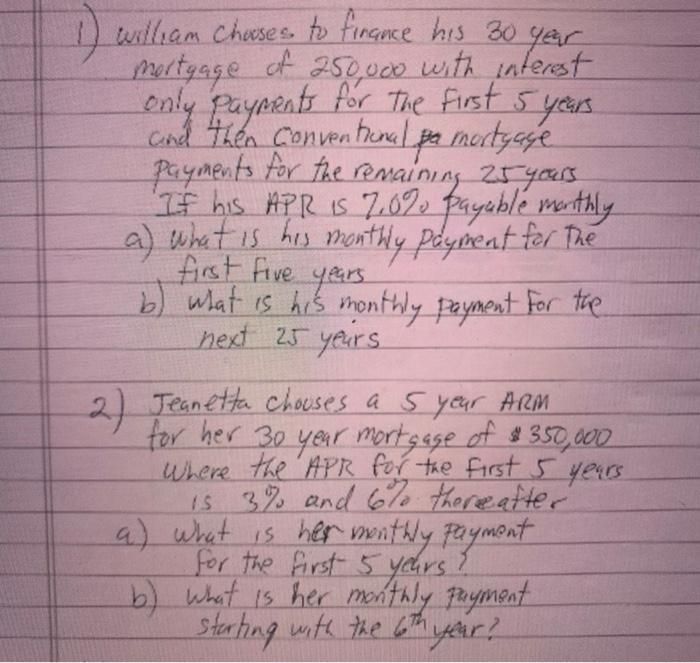 1) William Chooses to finance his 30 year
mortgage of 250,000 with interest
only payments for the first 5 years
and then Conventional mortgage
payments for the remaining 25 years
If his APR is 7.0% payable monthly
a) What is his monthly payment for the
first five years
b) what is his monthly payment for the
next 25 years
2) Jeanetta chooses a 5 year ARM
for her 30 year mortgage of $350,000
where the APR for the first 5 years
is 3% and 6% thereafter
a) what is her monthly payment
for the first 5 years?
b) what is her monthly payment
starting with the 6th year?